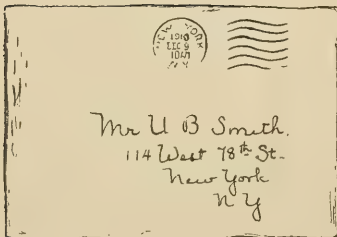 NEW YORK
1910
DEC 9
10 AM
N.Y.
Mr U B Smith.
114 West 78th St.
New York
N Y